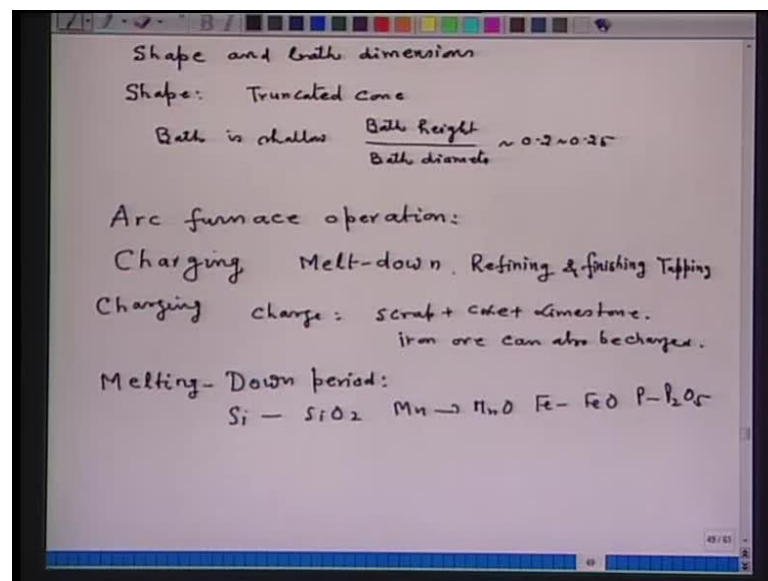 Shape and bath dimensions
Shape: Truncated Cone
Bath is shallow Bath height / Bath diamete ~ 0.2 ~ 0.25
Arc furnace operation:
Charging Melt-down. Refining & finishing Tapping
Charging charge: scrap + coke + Limestone.
iron ore can also be charged.
Melting-Down period:
Si — SiO2 Mn → MnO Fe - FeO P - P2O5
49 / 61
49